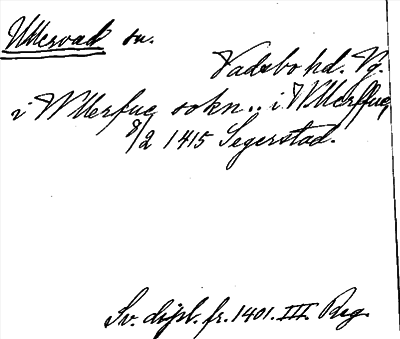 Ullervad sn.
Vadsbo hd. Vg.
i Wllerfuq sokn .. i Wllerffuq
8/2 1415 Segerstad.
Sv. dipl. fr. 1401. III. Reg.